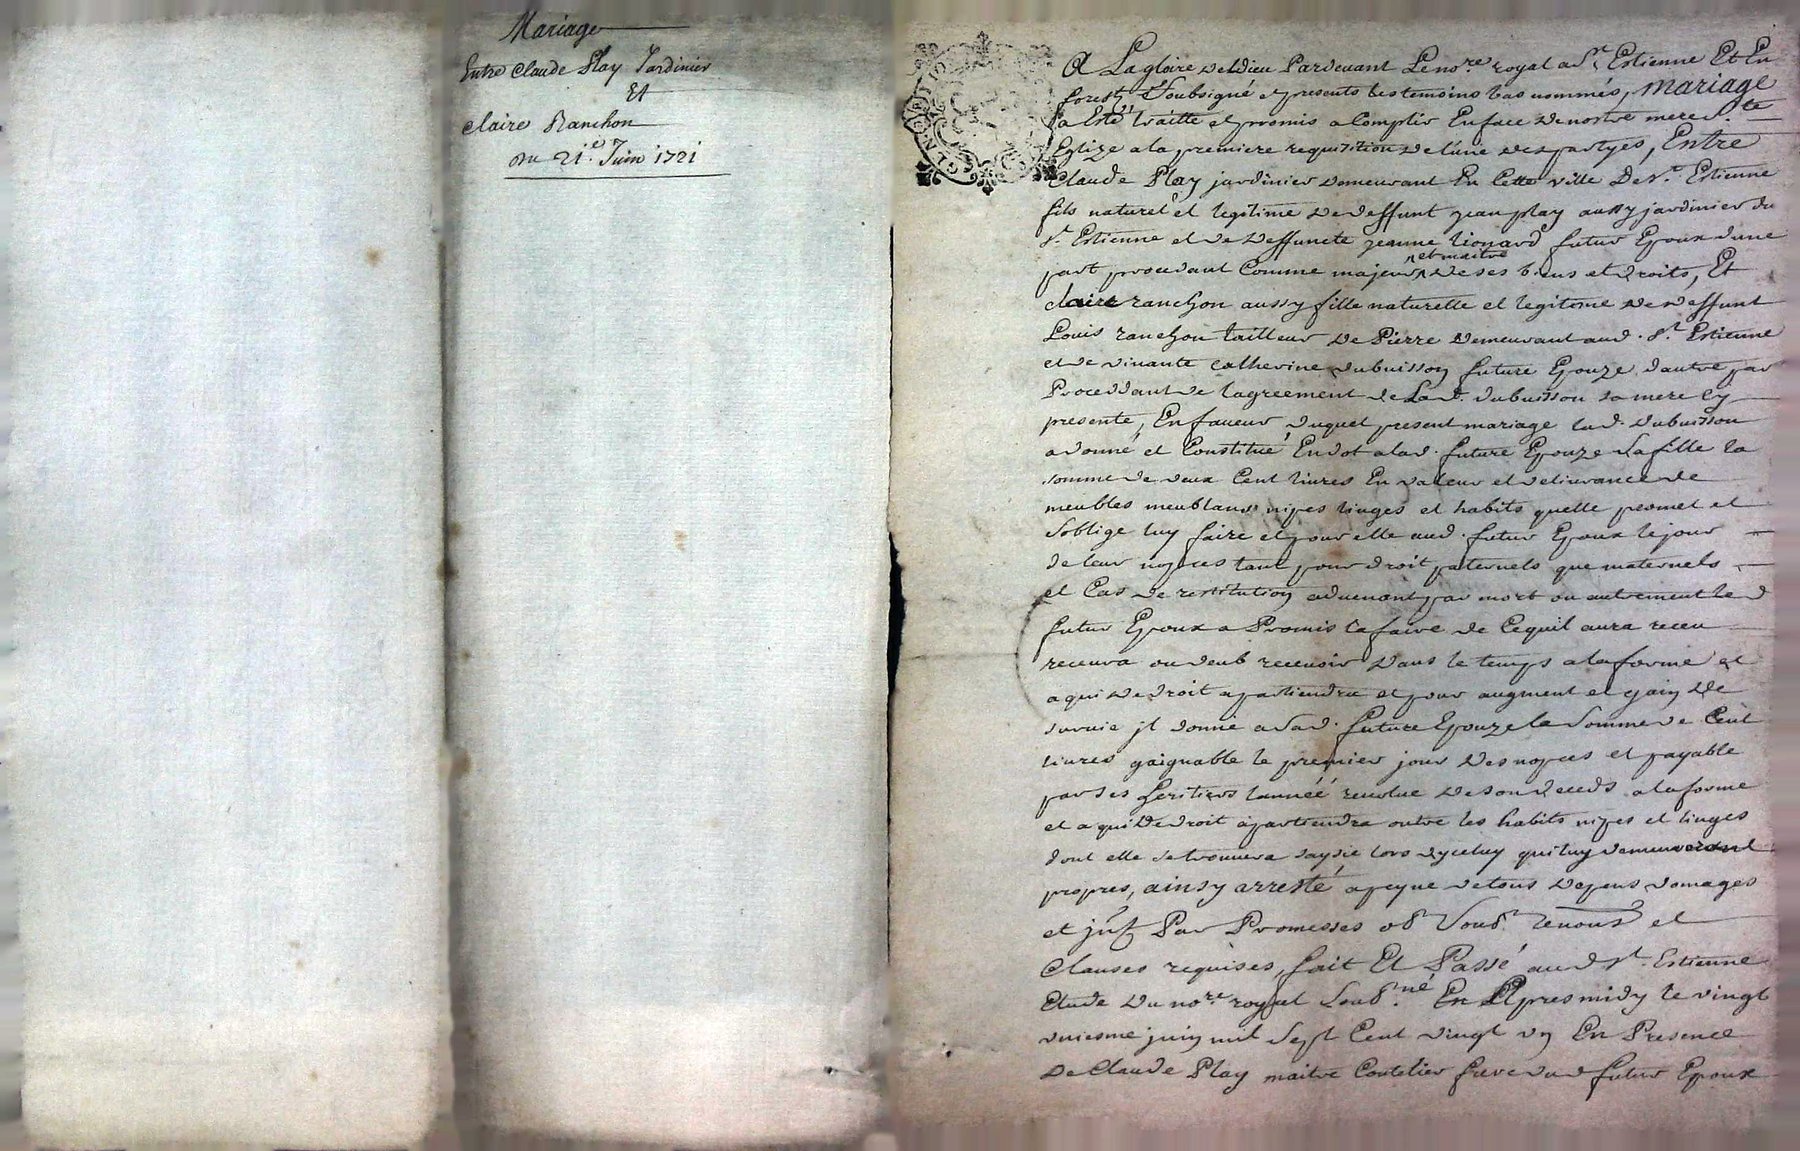 Mariage
Entre Claude Play Jardinier
Et
Claire Ranchon
Du 21.e Juin 1721
A La gloire de dieu Pardevant Le nore. royal a St. Estienne Et En
forest Soubsigné et presents les temoins bas nommés, Mariage
a Esté traitté et promis a Complir En face de nostre mere Ste.
Eglize a la premiere requisition de l'une des partyes, Entre
Claude Play jardinier demeurant En Cette ville De St. Estienne
fils naturel et legitime de deffunt jean play aussy jardinier du
St. Estienne et de deffuncte jeanne lionard futur Epoux d'une
part procedant Comme majeur et maitre de ses biens et droits, Et
claire ranchon aussy fille naturelle et legitime de deffunt
Louis ranchon tailleur de Pierre demeurant aud. St. Estienne
et de vivante catherine dubuisson future Epouze d'autre par
Proceddant de l'agreement de Lad. dubuisson sa mere Cy
presente, En faveur duquel present mariage lad. dubuisson
a donné et Constitué En dot a lad. future Epouze sa fille la
somme de deux Cent livres En valeur et delivrance de
meubles meublans nipes linges et habits quelle promet et
s'oblige luy faire et pour elle aud. futur Epoux le jour
de leur nopces tant pour droit paternels que maternels
et Cas de restitution advenant par mort ou autrement led
futur Epoux a Promis la faire de Cequil aura receu
recevra ou deub recevoir dans le temps a la forme et
a qui de droit apartiendra et pour augment et gain de
survie jl donne a sad. future Epouze la somme de Cent
livres gaignable le premier jour des nopces et payable
par ses heritiers l'année revolue de son deceds a la forme
et a qui de droit apartiendra outre les habits nipes et linges
dont elle se trouvera saysie lors dyceluy qui luy demeureront
propres, ainsy arresté a peyne de tous depens domages
et jnt. Par Promesses ob. Soub. renonz et
Clauses requises, fait Et Passé aud St. Estienne
Etude du nore. royal Soub.né En Apres midy le vingt
vniesme juin mil Sept Cent vingt vn En Presence
de Claude Play maitre Coutelier frere dud futur Epoux